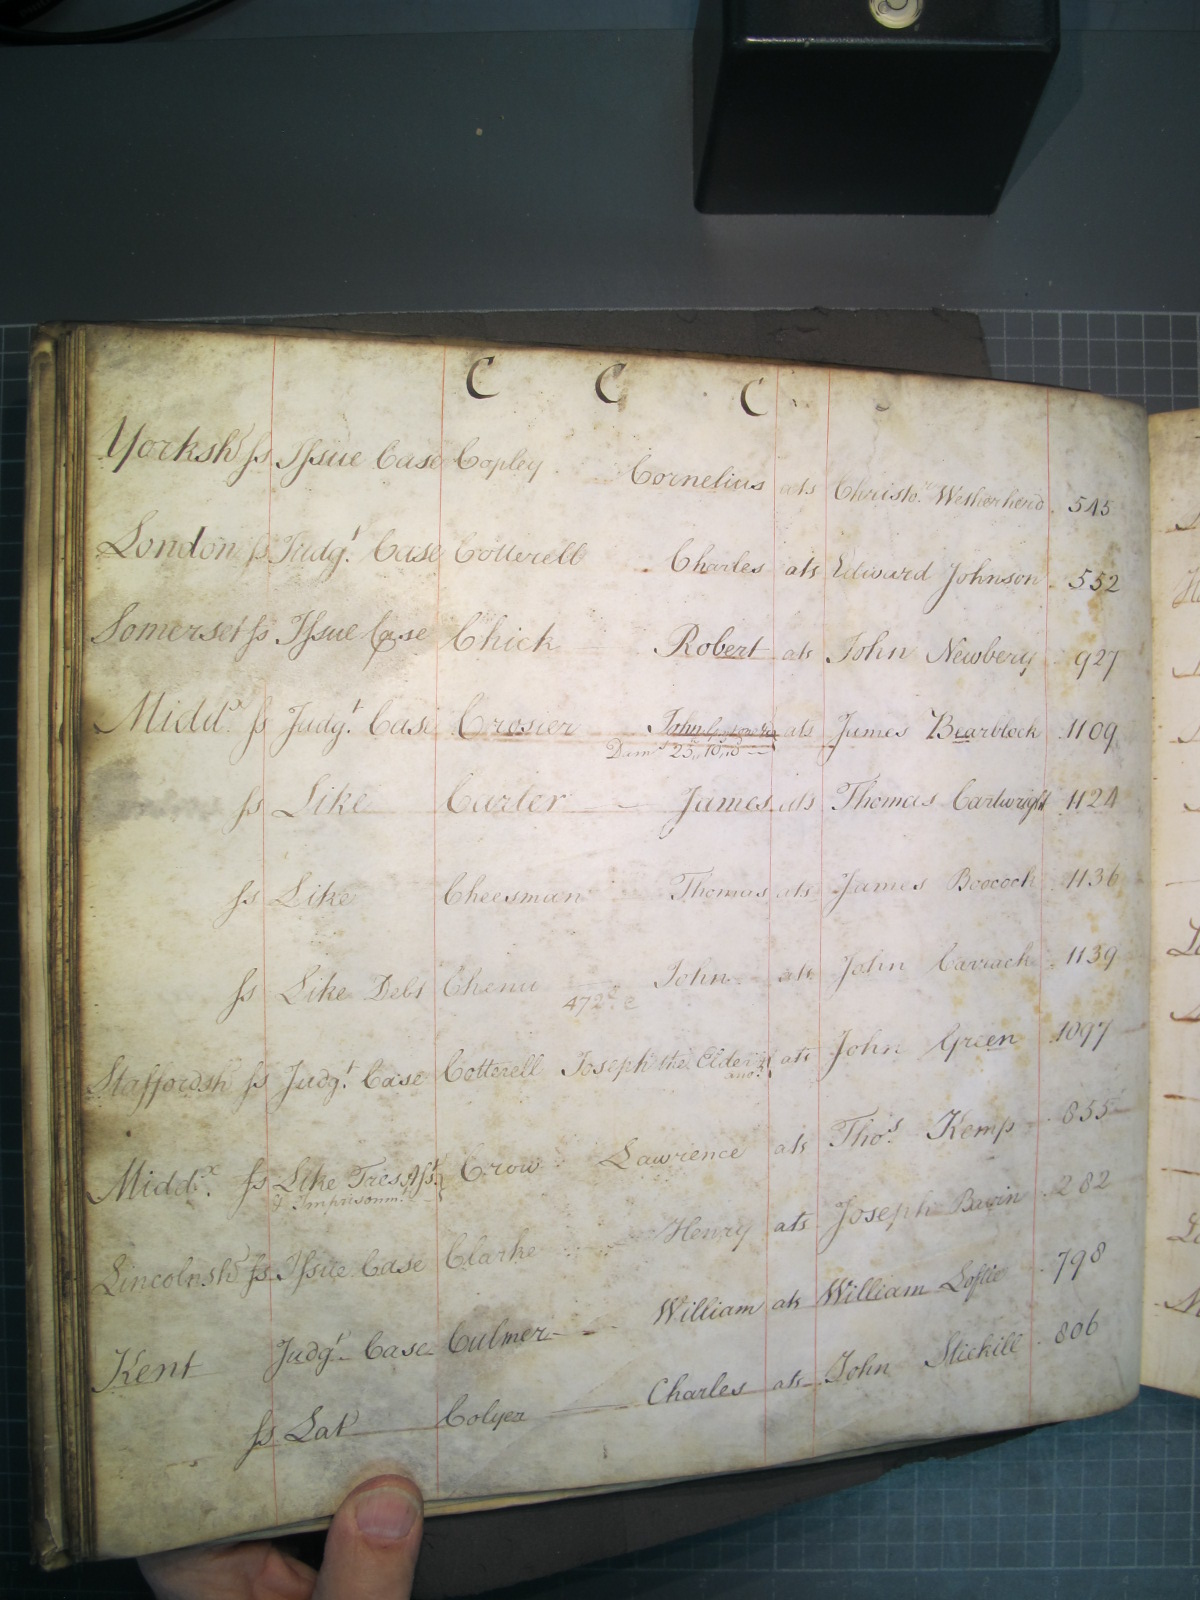 C C C
Yorksh.r ss Issue Case Copley Cornelius ats Christo.r Wetherherd 545
London ss Judg.t Case Cotterell Charles ats Edward Johnson 552
Somerset ss Issue Case Chick Robert ats John Newbery 927
Midd.x ss Judg.t Case Crosier John ats James Bearblock 1109
Dam.s 25,,10,,0
ss Like Carter James ats Thomas Cartwright 1124
ss Like Cheesman Thomas ats James Boocock 1136
ss Like Debt Chenu John ats John Carrack 1139
472
Staffordsh ss Judg.t Case Cotterell Joseph the Elder & ano.r ats John Green 1097
Midd.x ss Like Tres Ass.t Crow Lawrence ats Tho.s Kemp 855
& Imprisonm.t
Lincolnsh.r ss Issue Case Clarke Henry ats Joseph Bavin 282
Kent Judg.t Case Culmer William ats William Loftie 798
ss Lat Colyer Charles ats John Stickill 806